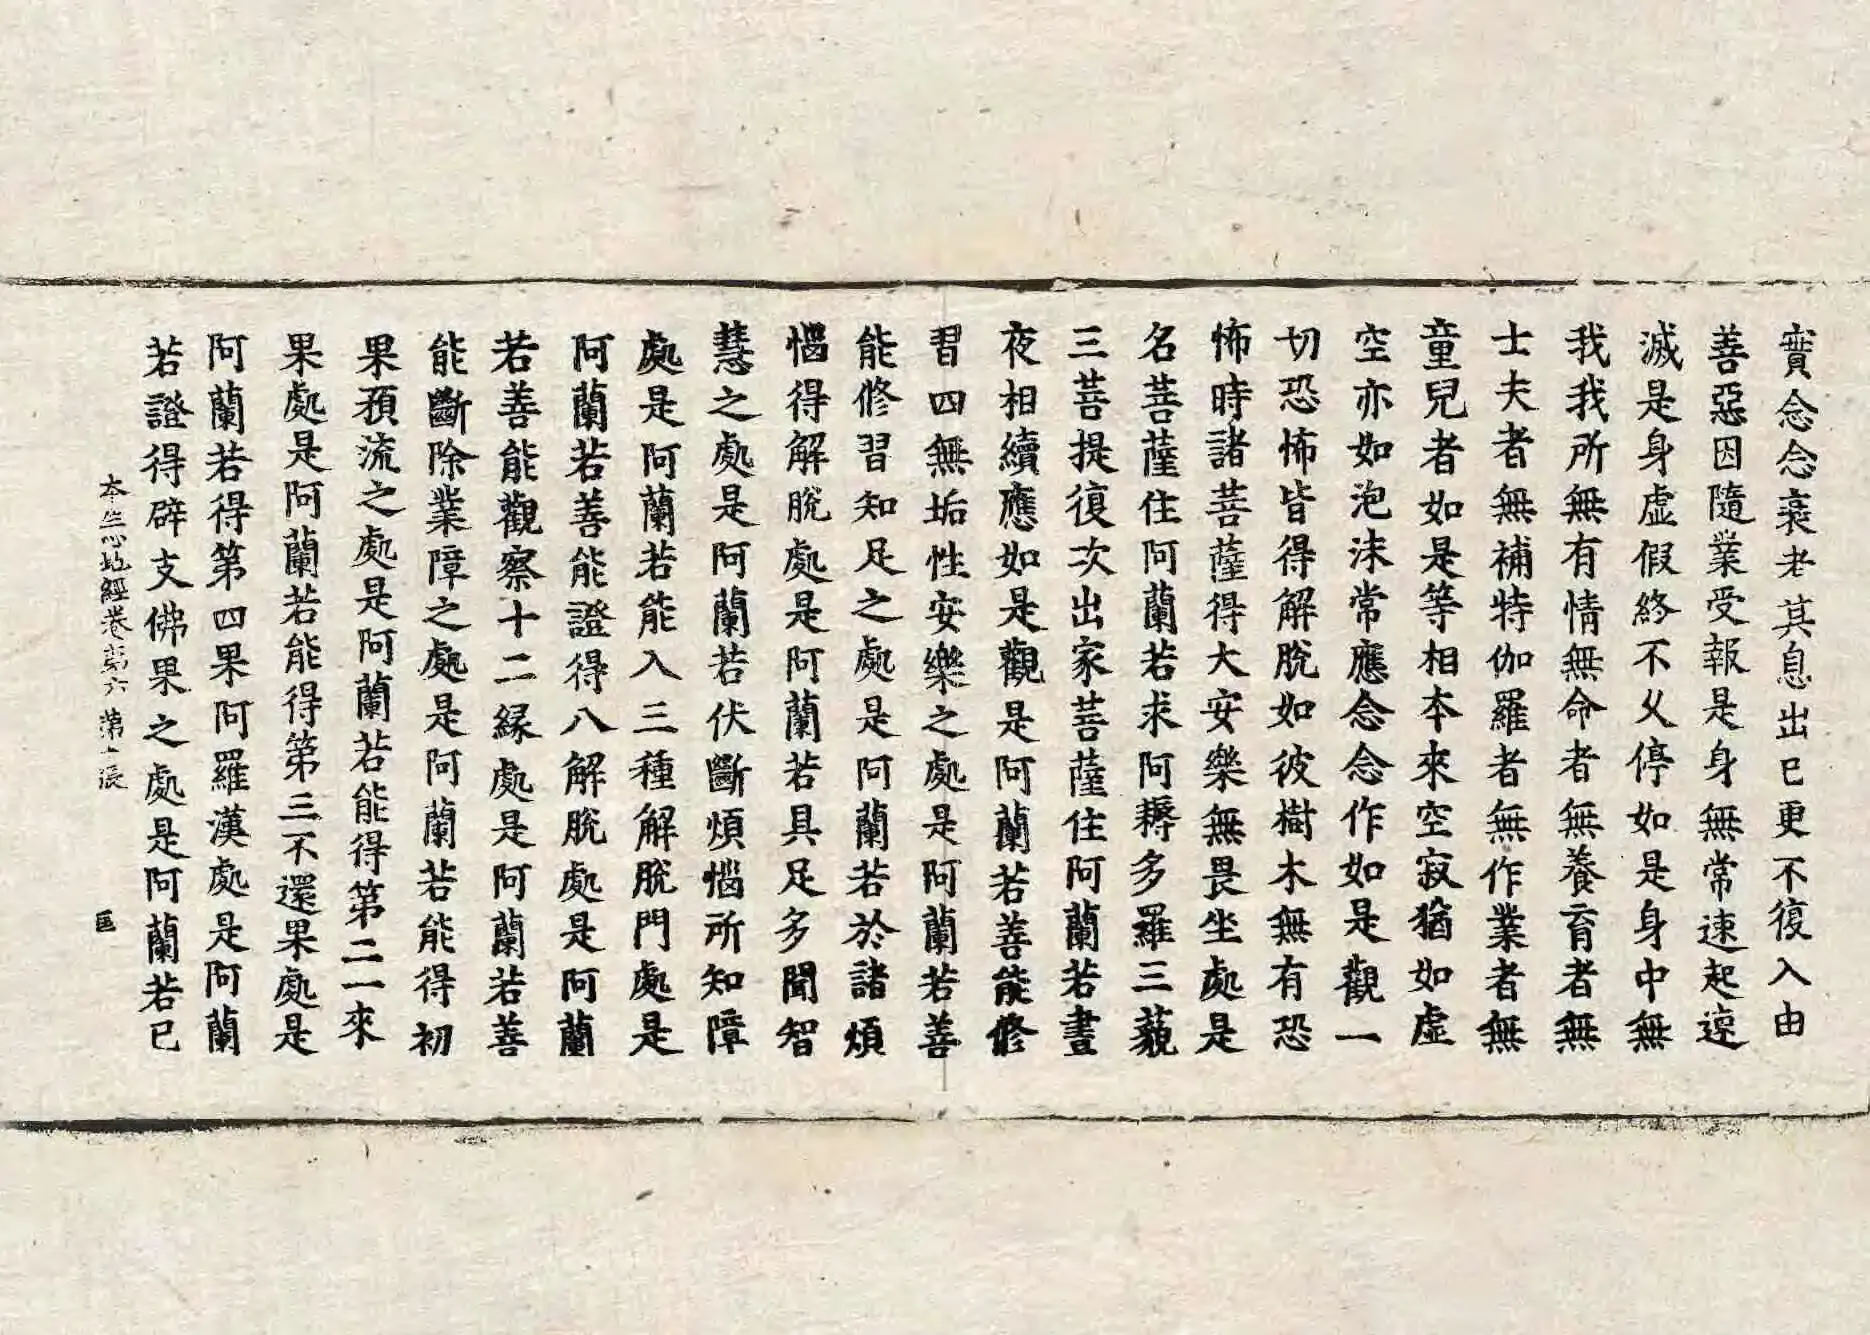 實念念衰老其息出已更不復入由
善惡因隨業受報是身無常速起速
滅是身虛假終不久停如是身中無
我我所無有情無命者無養育者無
士夫者無補特伽羅者無作業者無
童兒者如是等相本來空寂猶如虛
空亦如泡沫常應念念作如是觀一
切恐怖皆得解脫如彼樹木無有恐
怖時諸菩薩得大安樂無畏坐處是
名菩薩住阿蘭若求阿耨多羅三藐
三菩提復次出家菩薩住阿蘭若晝
夜相續應如是觀是阿蘭若善能修
習四無垢性安樂之處是阿蘭若善
能修習知足之處是阿蘭若於諸煩
惱得解脫處是阿蘭若具足多聞智
慧之處是阿蘭若伏斷煩惱所知障
處是阿蘭若能入三種解脫門處是
阿蘭若善能證得八解脫處是阿蘭
若善能觀察十二緣處是阿蘭若善
能斷除業障之處是阿蘭若能得初
果預流之處是阿蘭若能得第二一來
果處是阿蘭若能得第三不還果處是
阿蘭若得第四果阿羅漢處是阿蘭
若證得辟支佛果之處是阿蘭若已
本生心地經卷第六 第十張